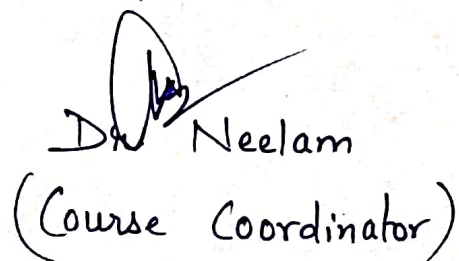 Dr Neelam
(Course Coordinator)